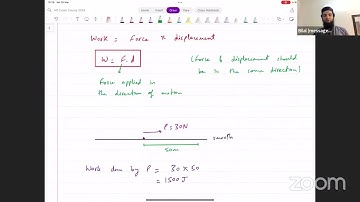 Work = Force x displacement
W = F.d
(Force & displacement should
be in the same direction)
Force applied in
the direction of motion
P = 30N
smooth
50m
Work done by P = 30 x 50
= 1500 J
zoom